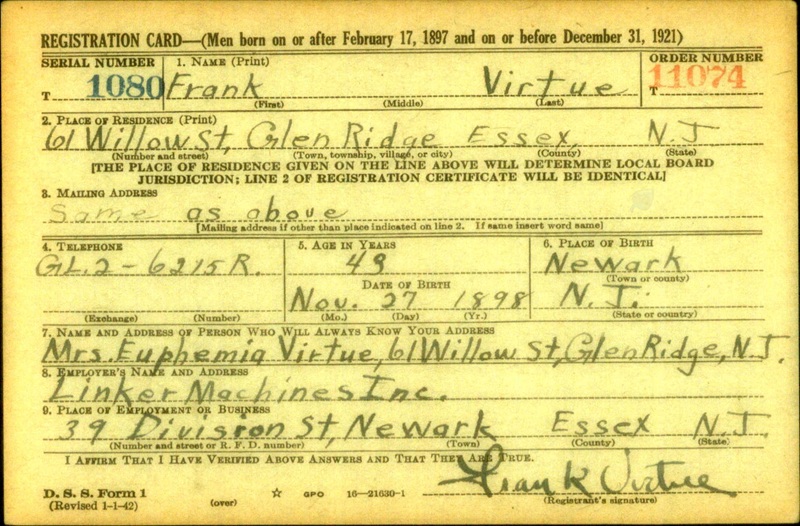 REGISTRATION CARD—(Men born on or after February 17, 1897 and on or before December 31, 1921)
SERIAL NUMBER 1. NAME (Print) ORDER NUMBER
T 1080 Frank Virtue T 11074
(First) (Middle) (Last)
2. PLACE OF RESIDENCE (Print)
61 Willow St, Glen Ridge Essex, N. J
(Number and street) (Town, township, village, or city) (County) (State)
[THE PLACE OF RESIDENCE GIVEN ON THE LINE ABOVE WILL DETERMINE LOCAL BOARD
JURISDICTION; LINE 2 OF REGISTRATION CERTIFICATE WILL BE IDENTICAL]
3. MAILING ADDRESS
Same as above
[Mailing address if other than place indicated on line 2. If same insert word same]
4. TELEPHONE 5. AGE IN YEARS 6. PLACE OF BIRTH
GL.2-6215R. 43 Newark
(Town or county)
DATE OF BIRTH
Nov. 27 1898 N. J.
(Exchange) (Number) (Mo.) (Day) (Yr.) (State or country)
7. NAME AND ADDRESS OF PERSON WHO WILL ALWAYS KNOW YOUR ADDRESS
Mrs. Euphemia Virtue, 61 Willow St, Glen Ridge, N.J.
8. EMPLOYER'S NAME AND ADDRESS
Linker Machines Inc.
9. PLACE OF EMPLOYMENT OR BUSINESS
39 Division St, Newark Essex N. J.
(Number and street or R. F. D. number) (Town) (County) (State)
I AFFIRM THAT I HAVE VERIFIED ABOVE ANSWERS AND THAT THEY ARE TRUE.
Frank Virtue
D. S. S. Form 1
(Revised 1-1-42) (over) ☆ GPO 16—21630-1 (Registrant's signature)